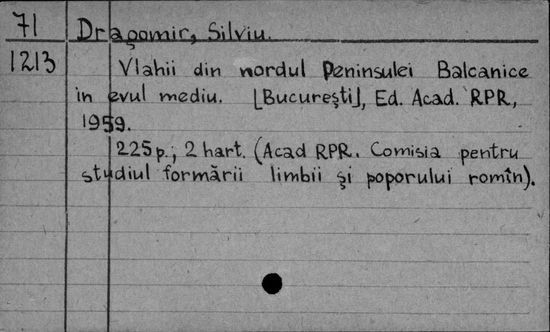 71 Dragomir, Silviu.
1213 Vlahii din nordul Peninsulei Balcanice
in evul mediu. [București], Ed. Acad. RPR,
1959.
225 p.; 2 hart. (Acad RPR. Comisia pentru
studiul formării limbii și poporului romîn).